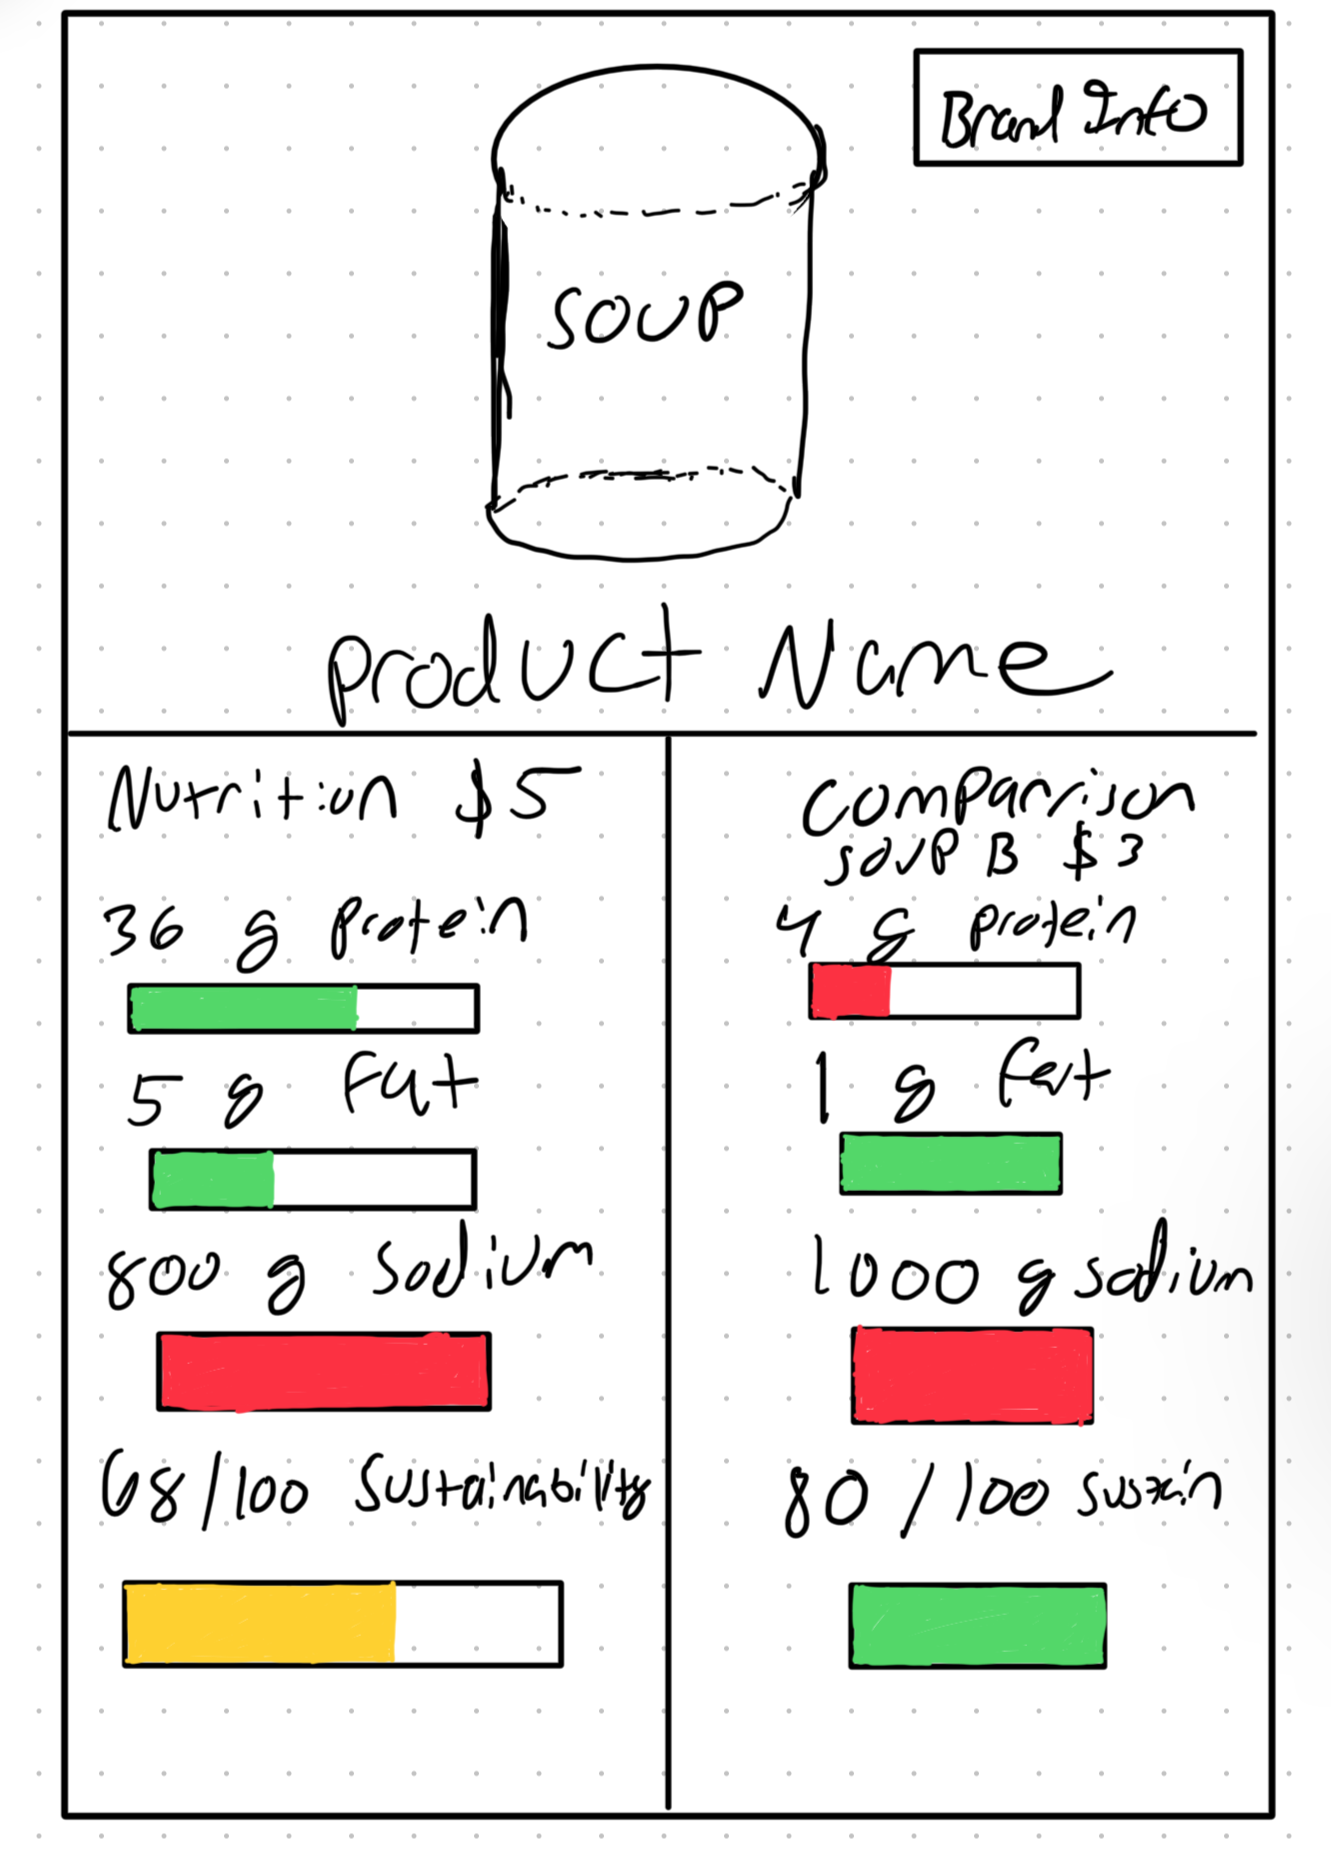 Brand Info
SOUP
Product Name
Nutrition $5
36 g protein
5 g Fat
800 g Sodium
68/100 Sustainability
Comparison
SOUP B $3
4 g protein
1 g fat
1000 g sodium
80 / 100 sustain